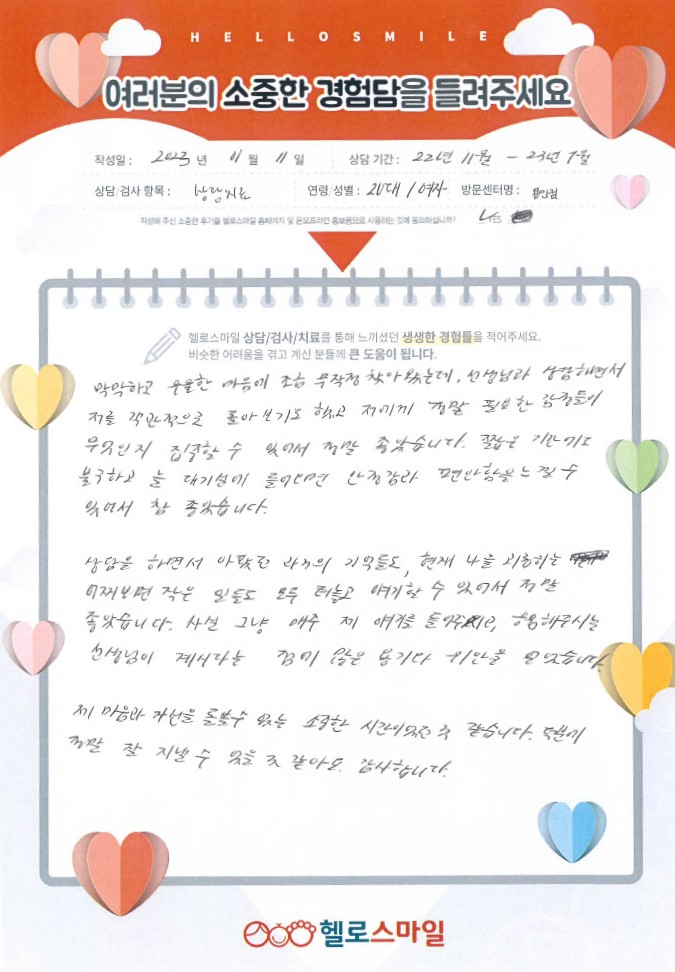 HELLOSMILE
여러분의 소중한 경험담을 들려주세요
작성일 : 2023 년 11 월 11 일 상담 기간 : 22년 11월 - 23년 9월
상담/검사 항목 : 상담치료 연령/성별 : 20대 / 여자 방문센터명 :
작성해 주신 소중한 후기를 헬로스마일 홈페이지 및 온오프라인 홍보용으로 사용하는 것에 동의하십니까? ✓ YES
헬로스마일 상담/검사/치료를 통해 느끼셨던 생생한 경험들을 적어주세요.
비슷한 어려움을 겪고 계신 분들께 큰 도움이 됩니다.
막막하고 우울한 마음에 조금 무작정 찾아왔는데, 선생님과 상담하면서
저를 객관적으로 돌아보기도 하였고 저에게 정말 필요한 감정들이
무엇인지 집중할 수 있어서 정말 좋았습니다. 짧은 기간에도
불구하고 늘 대기실에 들어오면 안정감과 편안함을 느낄 수
있어서 참 좋았습니다.
상담을 하면서 아팠던 과거의 기억들도, 현재 나를 괴롭히는
어찌보면 작은 일들도 모두 터놓고 얘기할 수 있어서 정말
좋았습니다. 사실 그냥 매주 제 얘기를 들어주시고, 응원해주시는
선생님이 계시다는 점이 많은 용기와 위안을 얻었습니다.
제 마음과 자신을 돌볼수 있는 소중한 시간이었던 것 같습니다. 덕분에
정말 잘 지낼 수 있을 것 같아요. 감사합니다.
헬로스마일